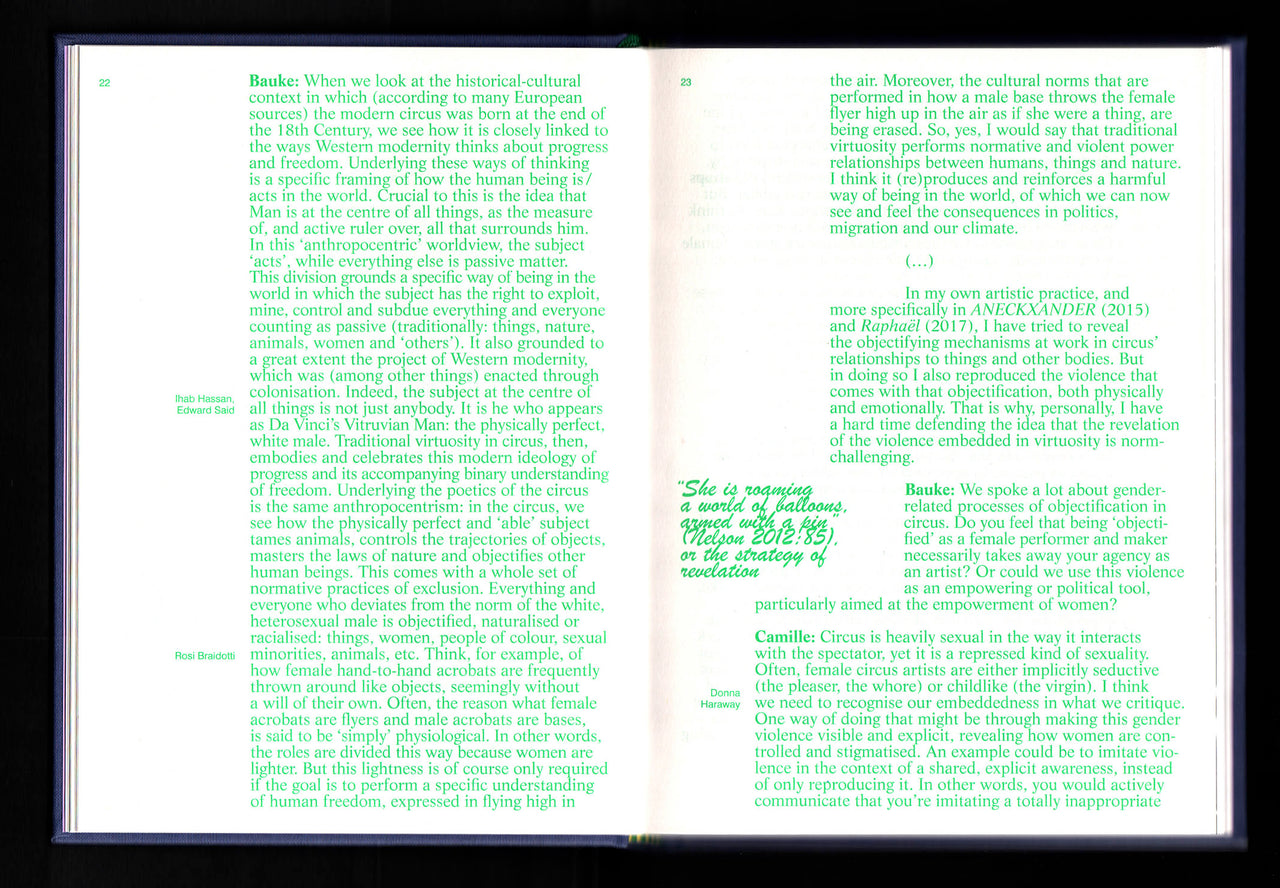 22
Bauke: When we look at the historical-cultural
context in which (according to many European
sources) the modern circus was born at the end of
the 18th Century, we see how it is closely linked to
the ways Western modernity thinks about progress
and freedom. Underlying these ways of thinking
is a specific framing of how the human being is/
acts in the world. Crucial to this is the idea that
Man is at the centre of all things, as the measure
of, and active ruler over, all that surrounds him.
In this ‘anthropocentric’ worldview, the subject
‘acts’, while everything else is passive matter.
This division grounds a specific way of being in the
world in which the subject has the right to exploit,
mine, control and subdue everything and everyone
counting as passive (traditionally: things, nature,
animals, women and ‘others’). It also grounded to
a great extent the project of Western modernity,
which was (among other things) enacted through
colonisation. Indeed, the subject at the centre of
Ihab Hassan,
Edward Said
all things is not just anybody. It is he who appears
as Da Vinci’s Vitruvian Man: the physically perfect,
white male. Traditional virtuosity in circus, then,
embodies and celebrates this modern ideology of
progress and its accompanying binary understanding
of freedom. Underlying the poetics of the circus
is the same anthropocentrism: in the circus, we
see how the physically perfect and ‘able’ subject
tames animals, controls the trajectories of objects,
masters the laws of nature and objectifies other
human beings. This comes with a whole set of
normative practices of exclusion. Everything and
everyone who deviates from the norm of the white,
heterosexual male is objectified, naturalised or
racialised: things, women, people of colour, sexual
Rosi Braidotti
minorities, animals, etc. Think, for example, of
how female hand-to-hand acrobats are frequently
thrown around like objects, seemingly without
a will of their own. Often, the reason what female
acrobats are flyers and male acrobats are bases,
is said to be ‘simply’ physiological. In other words,
the roles are divided this way because women are
lighter. But this lightness is of course only required
if the goal is to perform a specific understanding
of human freedom, expressed in flying high in
23
the air. Moreover, the cultural norms that are
performed in how a male base throws the female
flyer high up in the air as if she were a thing, are
being erased. So, yes, I would say that traditional
virtuosity performs normative and violent power
relationships between humans, things and nature.
I think it (re)produces and reinforces a harmful
way of being in the world, of which we can now
see and feel the consequences in politics,
migration and our climate.
(…)
In my own artistic practice, and
more specifically in ANECKXANDER (2015)
and Raphaël (2017), I have tried to reveal
the objectifying mechanisms at work in circus’
relationships to things and other bodies. But
in doing so I also reproduced the violence that
comes with that objectification, both physically
and emotionally. That is why, personally, I have
a hard time defending the idea that the revelation
of the violence embedded in virtuosity is norm-
challenging.
“She is roaming
a world of balloons,
armed with a pin”
(Nelson 2012:85),
or the strategy of
revelation
Bauke: We spoke a lot about gender-
related processes of objectification in
circus. Do you feel that being ‘objecti-
fied’ as a female performer and maker
necessarily takes away your agency as
an artist? Or could we use this violence
as an empowering or political tool,
particularly aimed at the empowerment of women?
Camille: Circus is heavily sexual in the way it interacts
with the spectator, yet it is a repressed kind of sexuality.
Often, female circus artists are either implicitly seductive
(the pleaser, the whore) or childlike (the virgin). I think
Donna
Haraway
we need to recognise our embeddedness in what we critique.
One way of doing that might be through making this gender
violence visible and explicit, revealing how women are con-
trolled and stigmatised. An example could be to imitate vio-
lence in the context of a shared, explicit awareness, instead
of only reproducing it. In other words, you would actively
communicate that you’re imitating a totally inappropriate